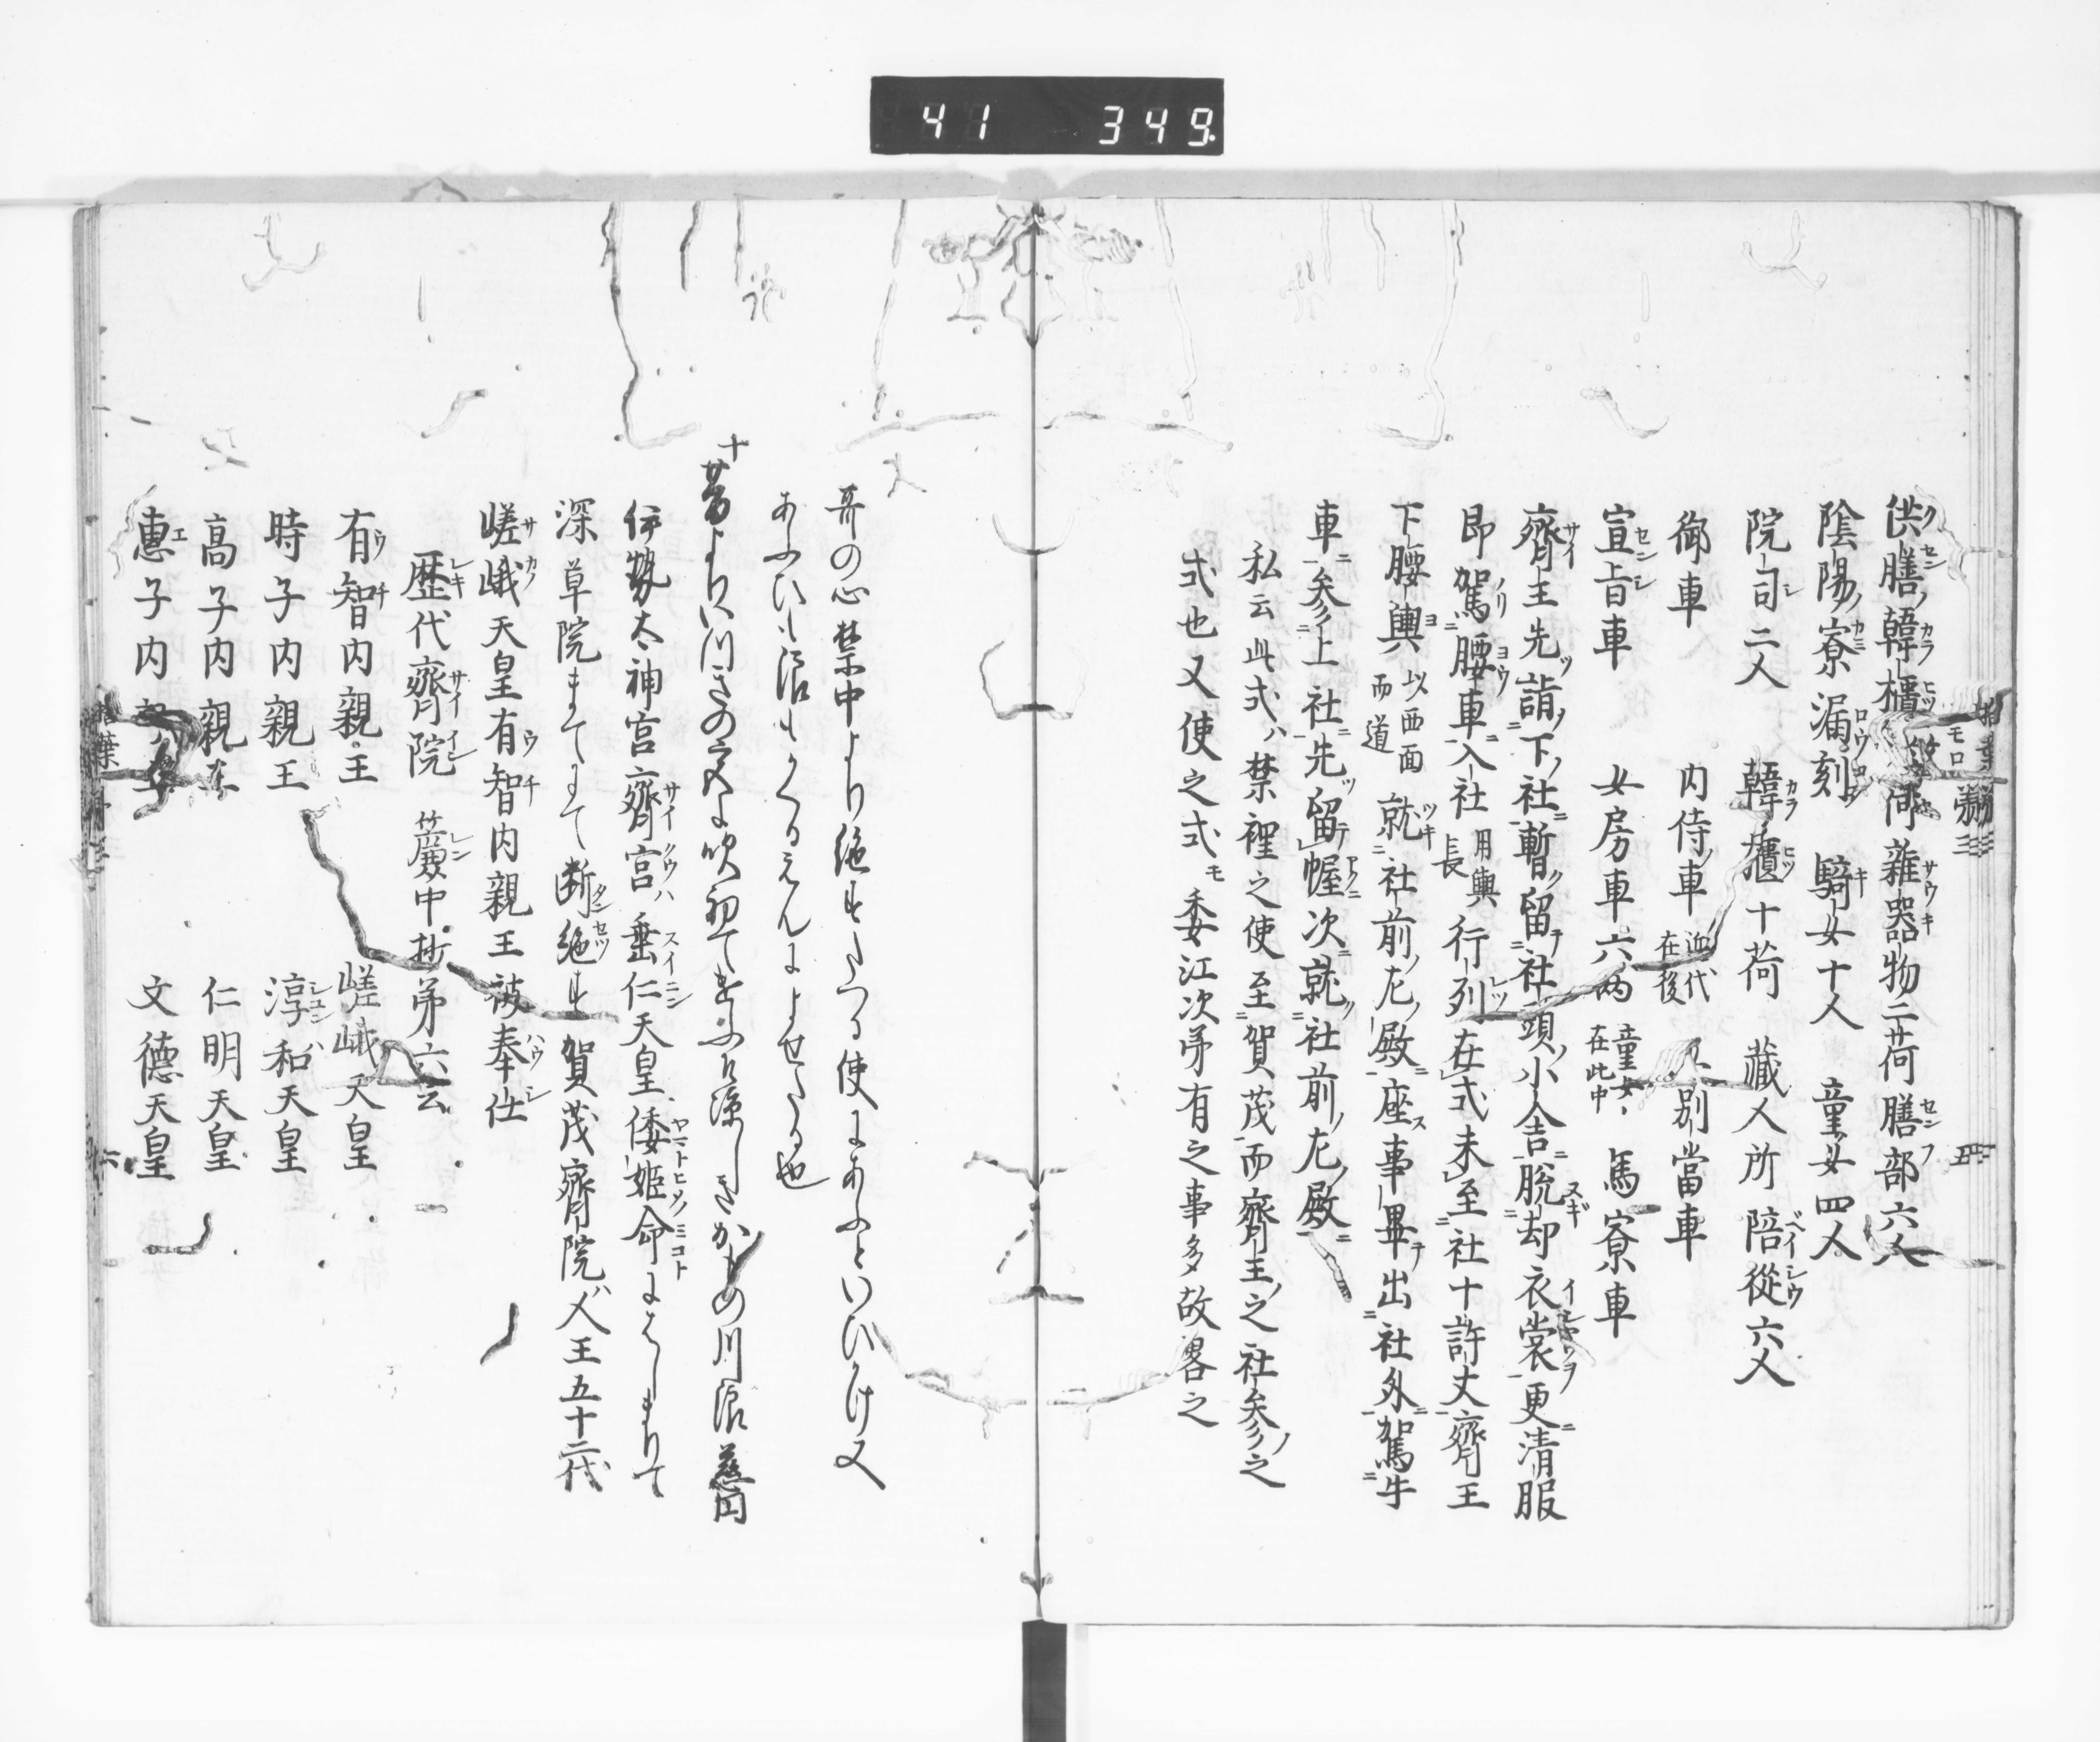 41 349
供膳韓櫃 荷雜器物二荷膳部六人
陰陽寮漏刻 騎女十人 童女四人
院司二人 韓櫃十荷 藏人所陪從六人
御車 内侍車 近代在後 別當車
宣旨車 女房車六兩 童女在此中 馬寮車
齊主先詣下社暫留社頭小舎脱却衣裳更清服
即駕腰車入社 用輿長 行列在式未至社十許丈齊王
下腰輿 以西面而道 就社前左殿座事畢出社外駕牛
車参上社先留幄次就社前左殿
私云此式ハ禁裡之使至賀茂而齊王之社参之
式也又使之式モ委江次第有之事多故畧之
哥の心禁中より絶すたつる使にあふといひかけ又
あふひも活もかくるえんによせたる也
十
葛よりいつきの宮に吹初てけふは涼しきかもの川浪 慈円
伊勢太神宮齊宮ハ垂仁天皇倭姫命にはしまりて
深草院まてにて断絶す賀茂齊院ハ人王五十二代
嵯峨天皇有智内親王被奉仕
歴代齊院 簾中抄第六云
有智内親王 嵯峨天皇
時子内親王 淳和天皇
高子内親王 仁明天皇
惠子内親 文德天皇